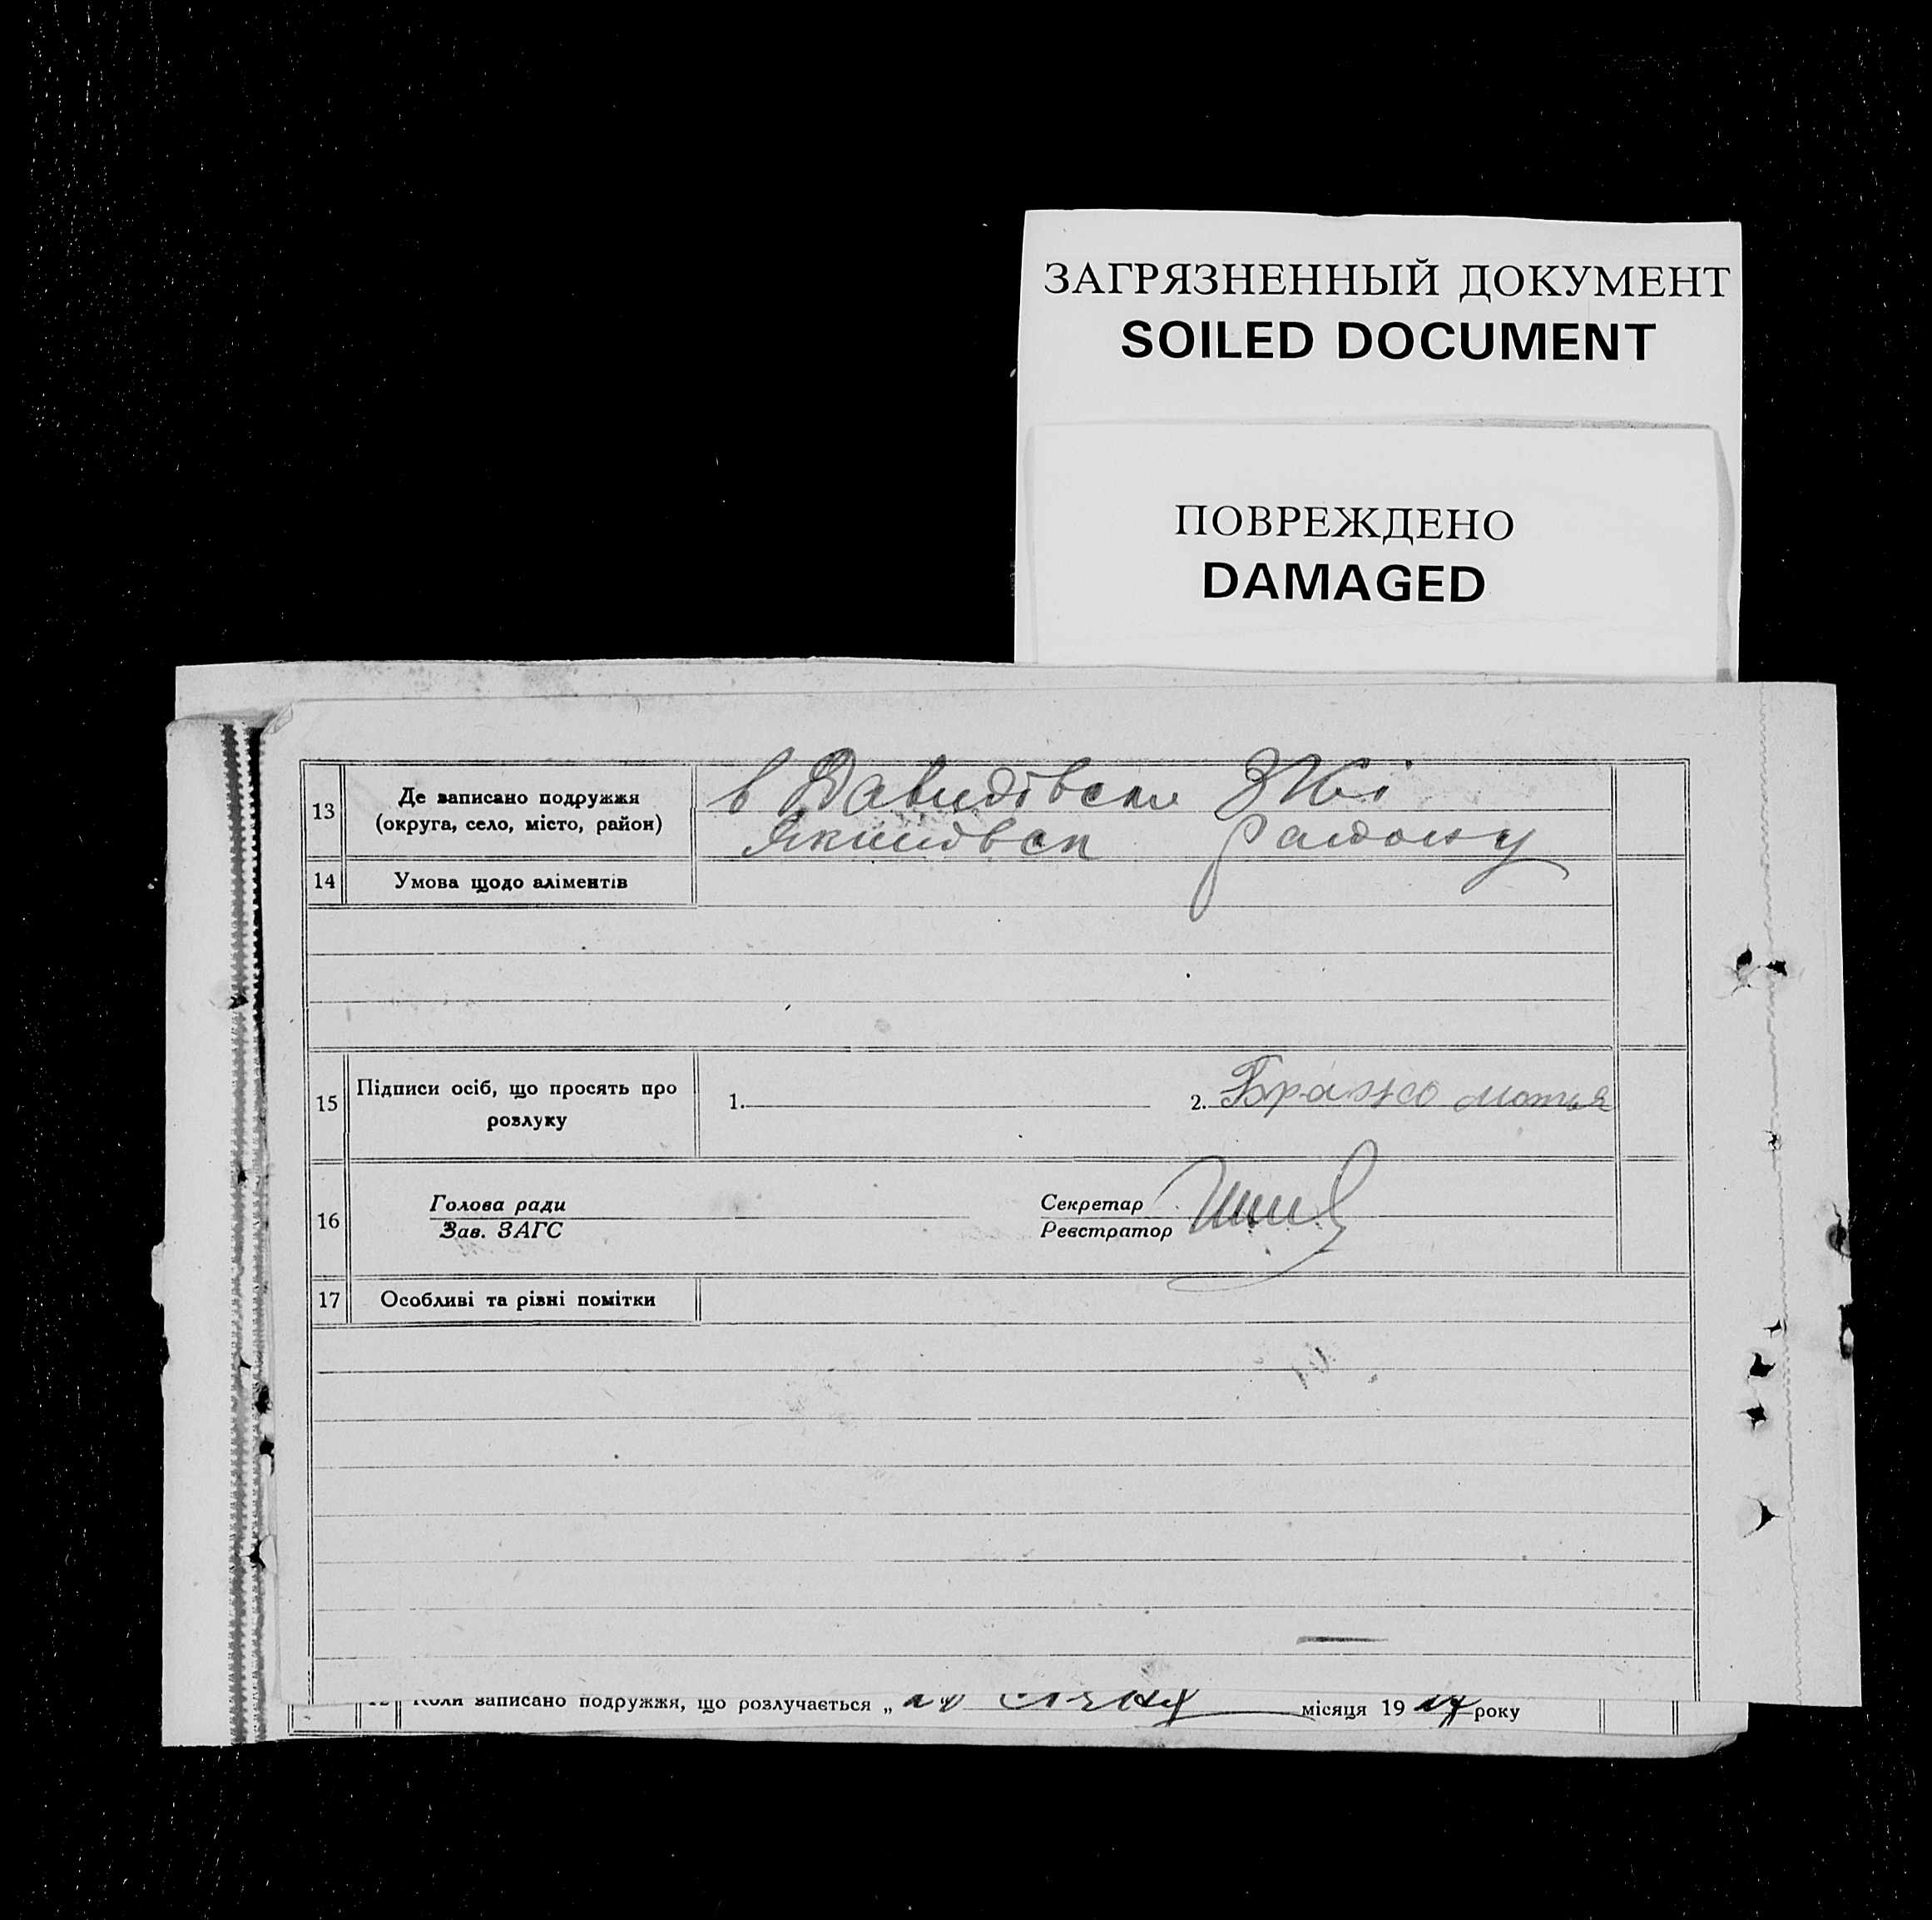 ЗАГРЯЗНЕННЫЙ ДОКУМЕНТ
SOILED DOCUMENT
ПОВРЕЖДЕНО
DAMAGED
13 Де записано подружжя
(округа, село, місто, район)
в Давидівськ
району
14 Умова щодо аліментів
15 Підписи осіб, що просять про
розлуку
1. 2. Бражко Мотья
16 Голова ради
Зав. ЗАГС
Секретар
Реєстратор
17 Особливі та різні помітки
12 Коли записано подружжя, що розлучається „ місяця 19 року